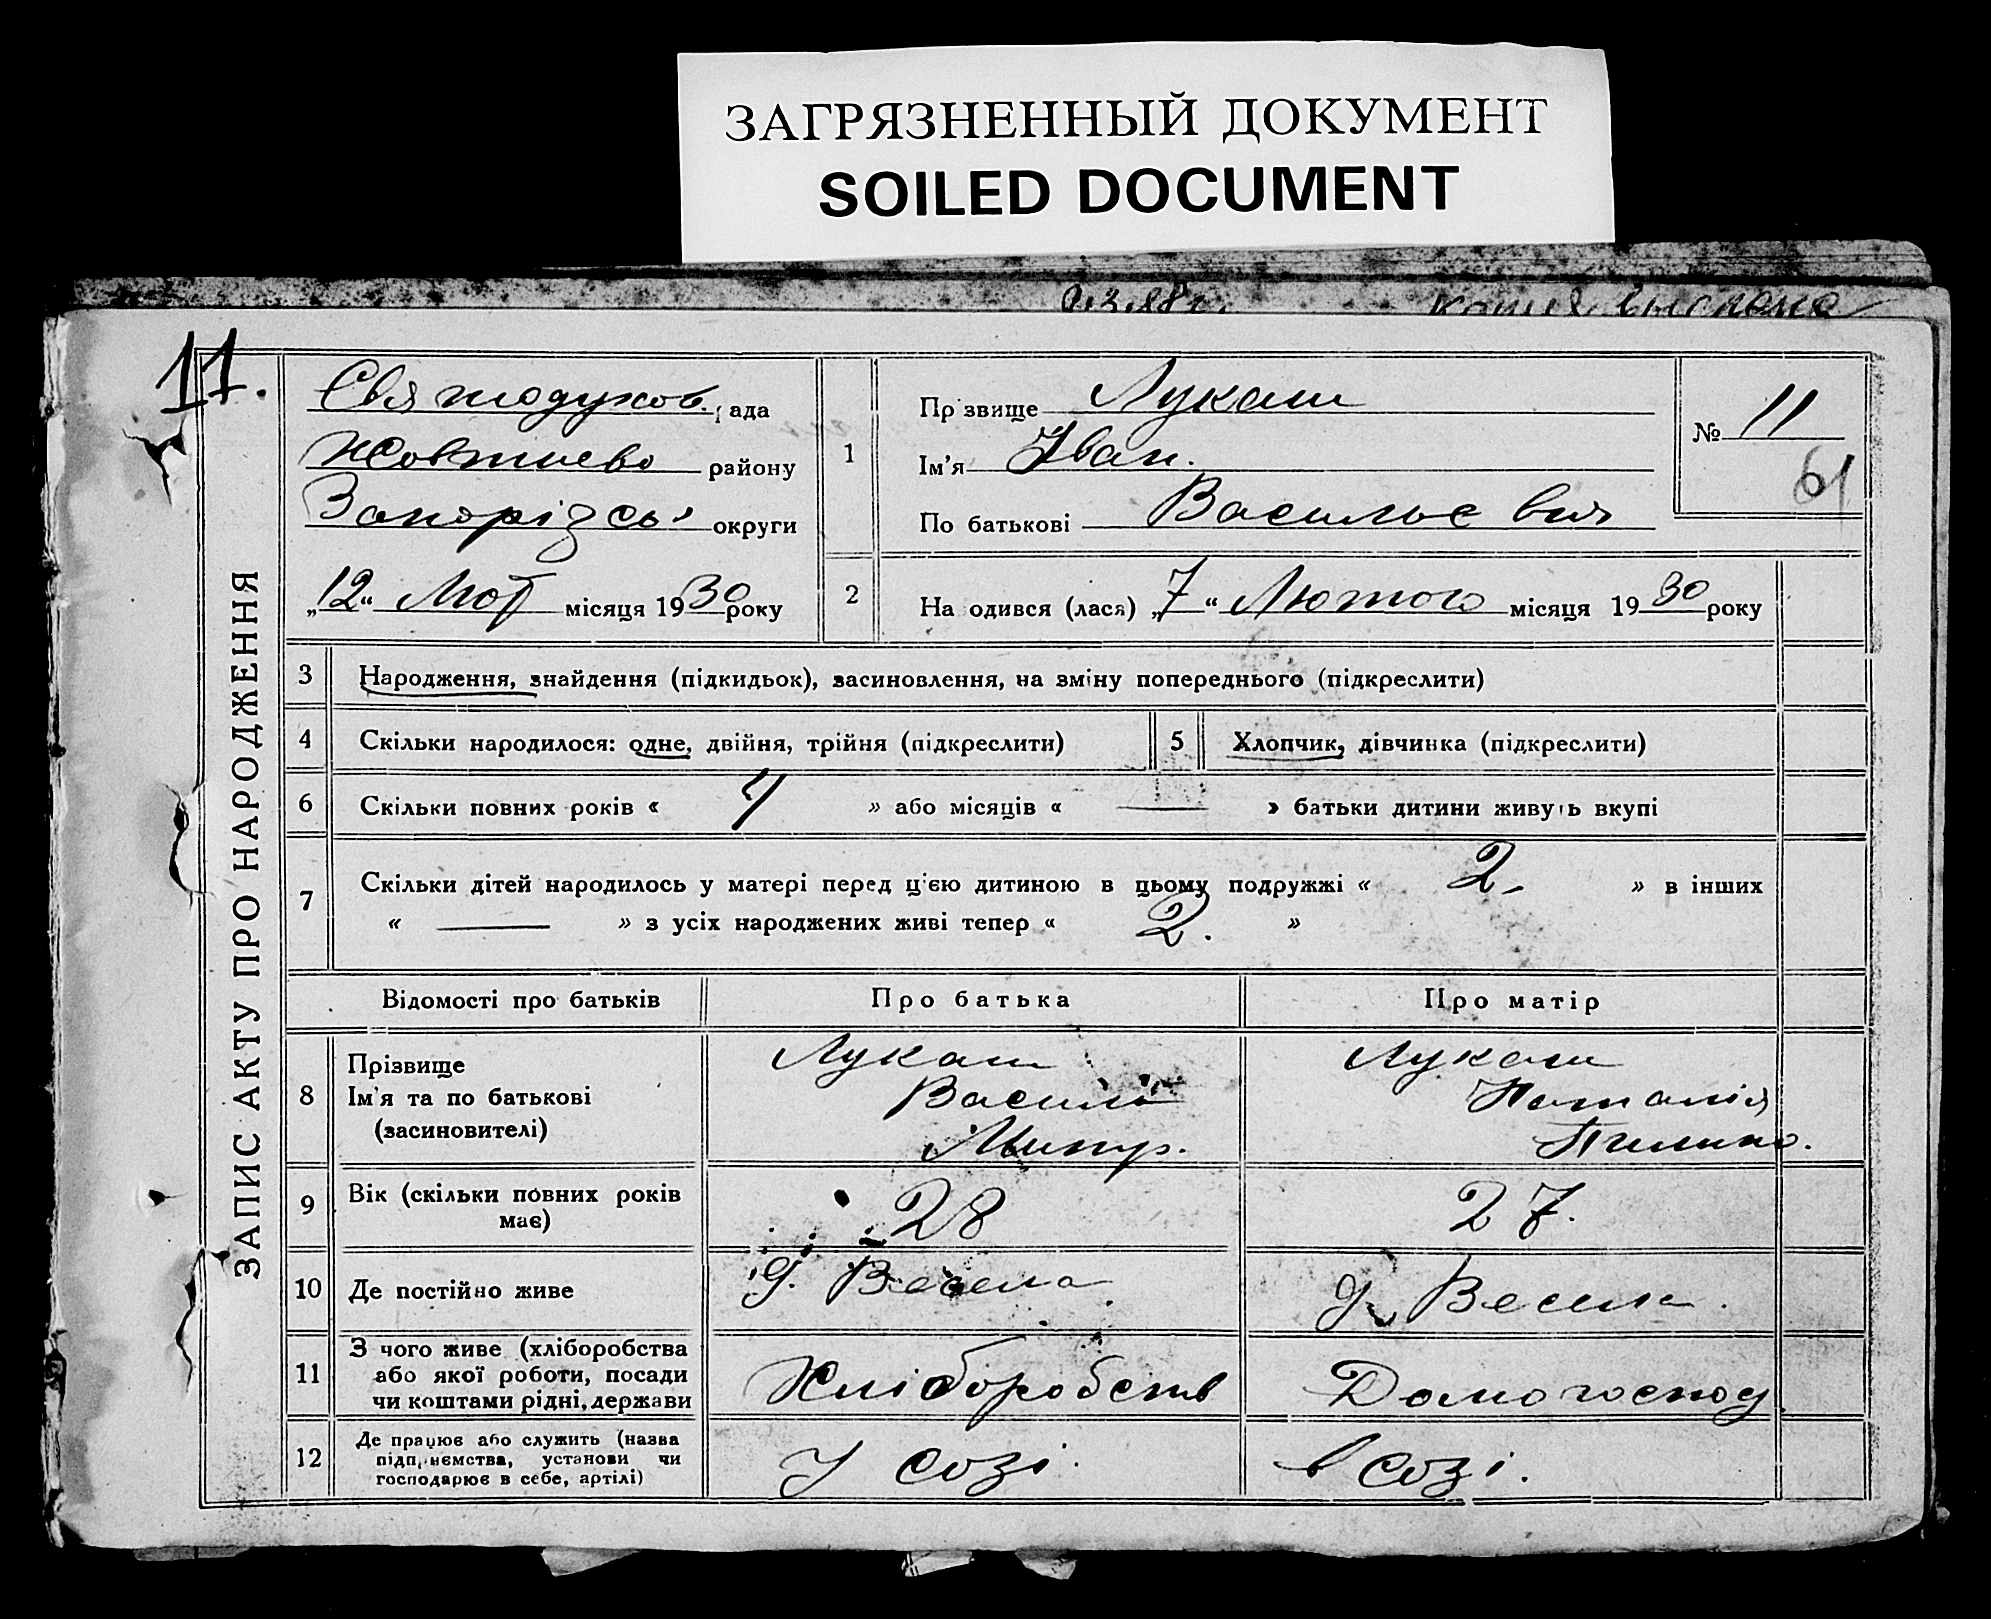 ЗАГРЯЗНЕННЫЙ ДОКУМЕНТ
SOILED DOCUMENT
11.
ЗАПИС АКТУ ПРО НАРОДЖЕННЯ
Святодухов. рада
Жовтнево району
Запорізсь округи
„12“ Лют місяця 1930 року
1
Прізвище Лукаш
Ім'я Іван.
По батькові Васильєвич
№ 11
61
2
Народився (лася) „7“ Лютого місяця 1930 року
3 Народження, знайдення (підкидьок), засиновлення, на зміну попереднього (підкреслити)
4 Скільки народилося: одне, двійня, трійня (підкреслити)
5 Хлопчик, дівчинка (підкреслити)
6 Скільки повних років « » або місяців « — » батьки дитини живуть вкупі
7 Скільки дітей народилось у матері перед цією дитиною в цьому подружжі « 2 » в інших
« — » з усіх народжених живі тепер « 2. »
Відомості про батьків Про батька Про матір
8 Прізвище
Ім'я та по батькові
(засиновителі)
Лукаш
Василь
Лукаш
Наталія
9 Вік (скільки повних років
має)
28
27.
10 Де постійно живе
Весела
Весела
11 З чого живе (хліборобства
або якої роботи, посади
чи коштами рідні, держави
Хліборобств
Домогоспод
12 Де працює або служить (назва
підприємства, установи чи
господарює в себе, артілі)
У созі.
в созі.